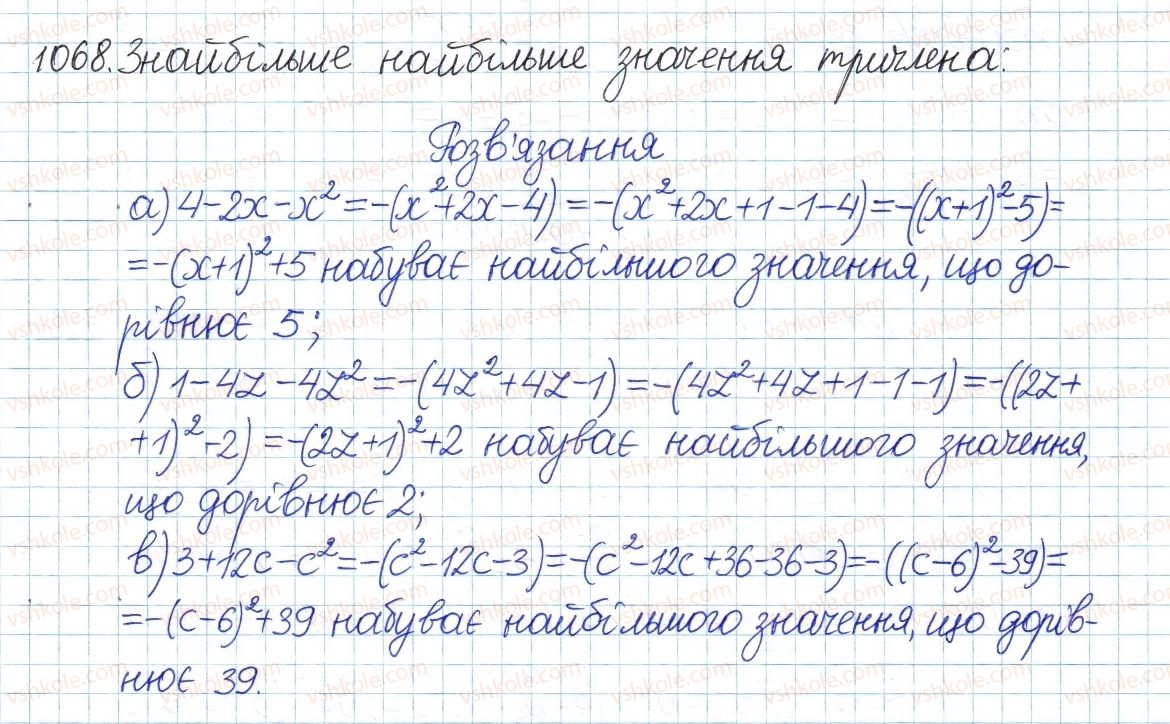 1068. Знайбільше найбільше значення тричлена:
Розв'язання
а) 4-2x-x²=-(x²+2x-4)=-(x²+2x+1-1-4)=-((x+1)²-5)=
=-(x+1)²+5 набуває найбільшого значення, що до-
рівнює 5;
б) 1-4z-4z²=-(4z²+4z-1)=-(4z²+4z+1-1-1)=-((2z+
+1)²-2)=-(2z+1)²+2 набуває найбільшого значення,
що дорівнює 2;
в) 3+12c-c²=-(c²-12c-3)=-(c²-12c+36-36-3)=-((c-6)²-39)=
=-(c-6)²+39 набуває найбільшого значення, що дорів-
нює 39.